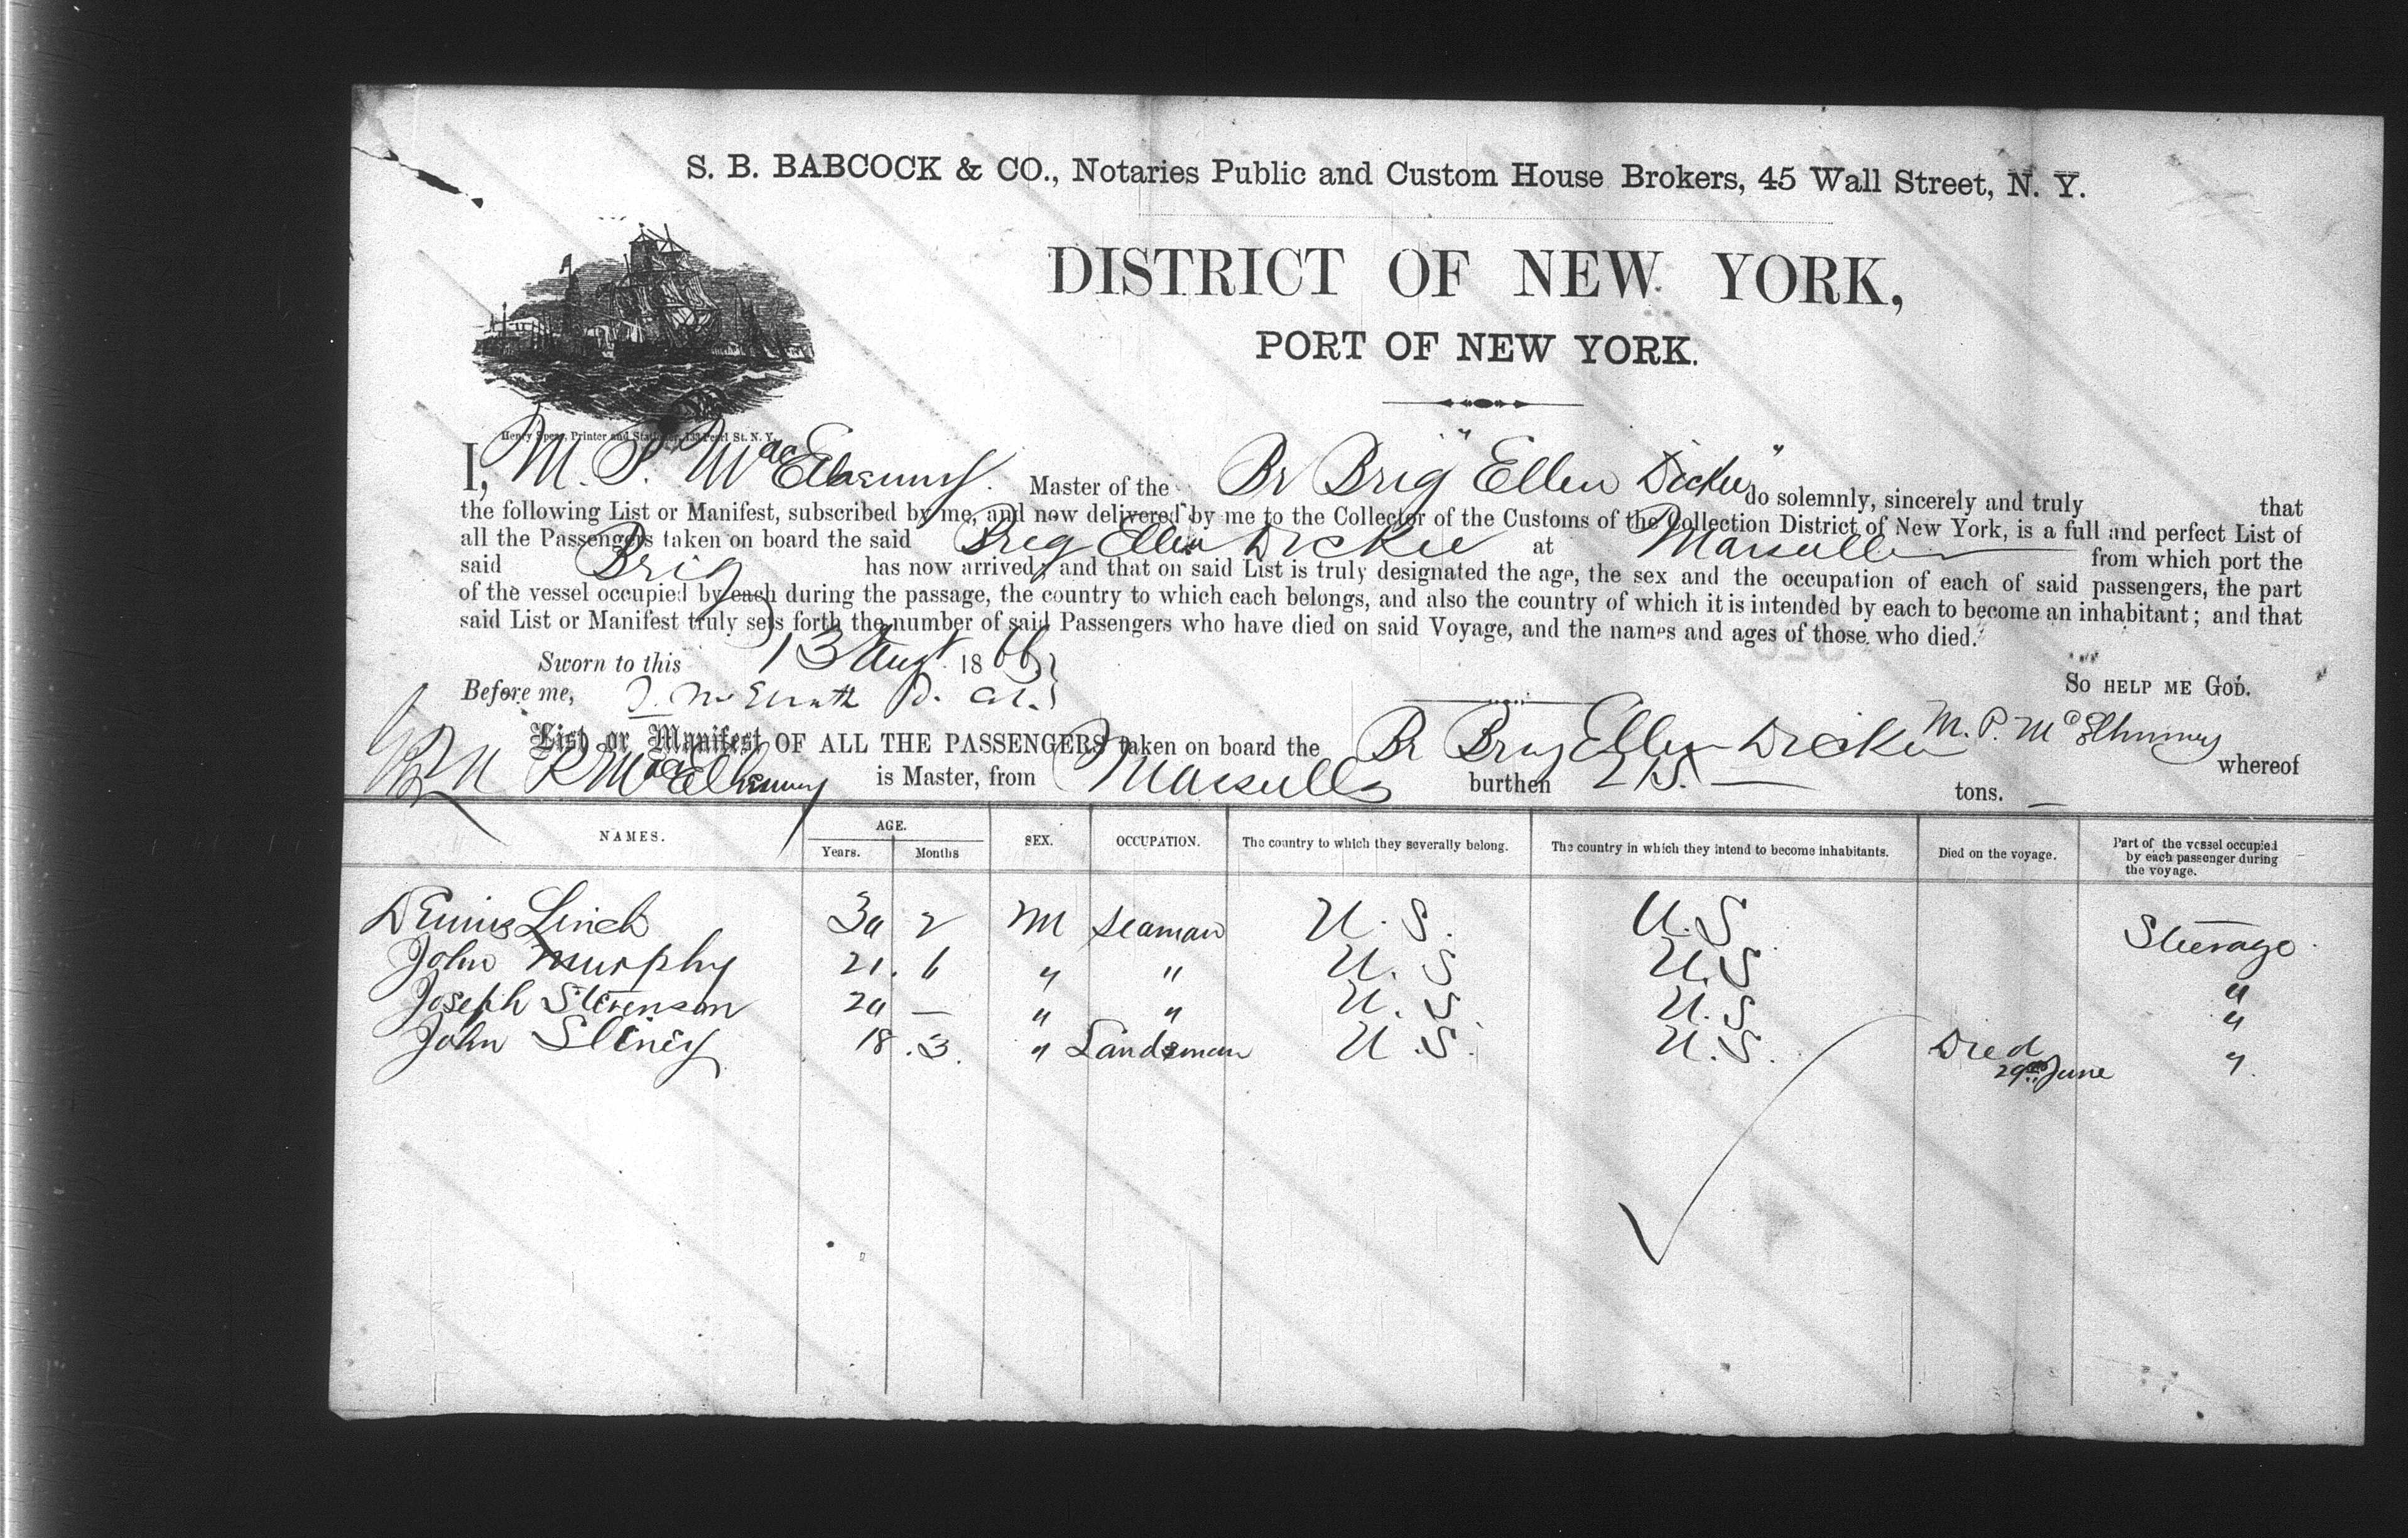 S. B. BABCOCK & CO., Notaries Public and Custom House Brokers, 45 Wall Street, N. Y.
DISTRICT OF NEW YORK,
PORT OF NEW YORK.
Henry Spear, Printer and Stationer, 133 Pearl St. N. Y.
I, M. P. MacElhenny. Master of the Br Brig "Ellen Dickie" do solemnly, sincerely and truly that
the following List or Manifest, subscribed by me, and now delivered by me to the Collector of the Customs of the Collection District of New York, is a full and perfect List of
all the Passengers taken on board the said Brig Ellen Dickie at Marseilles from which port the
said Brig has now arrived; and that on said List is truly designated the age, the sex and the occupation of each of said passengers, the part
of the vessel occupied by each during the passage, the country to which each belongs, and also the country of which it is intended by each to become an inhabitant; and that
said List or Manifest truly sets forth the number of said Passengers who have died on said Voyage, and the names and ages of those who died.
Sworn to this 13 Augt 1866
So HELP ME GOD.
Before me,
M. P. McElhenny
List or Manifest OF ALL THE PASSENGERS taken on board the Br Brig Ellen Dickie whereof
MacElhenny is Master, from Marseilles burthen 215. tons.
NAMES. AGE. Years. Months SEX. OCCUPATION. The country to which they severally belong. The country in which they intend to become inhabitants. Died on the voyage. Part of the vessel occupied by each passenger during the voyage.
Dennis Linch 30 2 M Seaman U. S. U. S Steerage
John Murphy 21. 6 " " U. S U. S "
Joseph Stevenson 20 — " " U. S U. S "
John Sliney 18. 3. " Landsman U. S. U. S. Died 29th June "